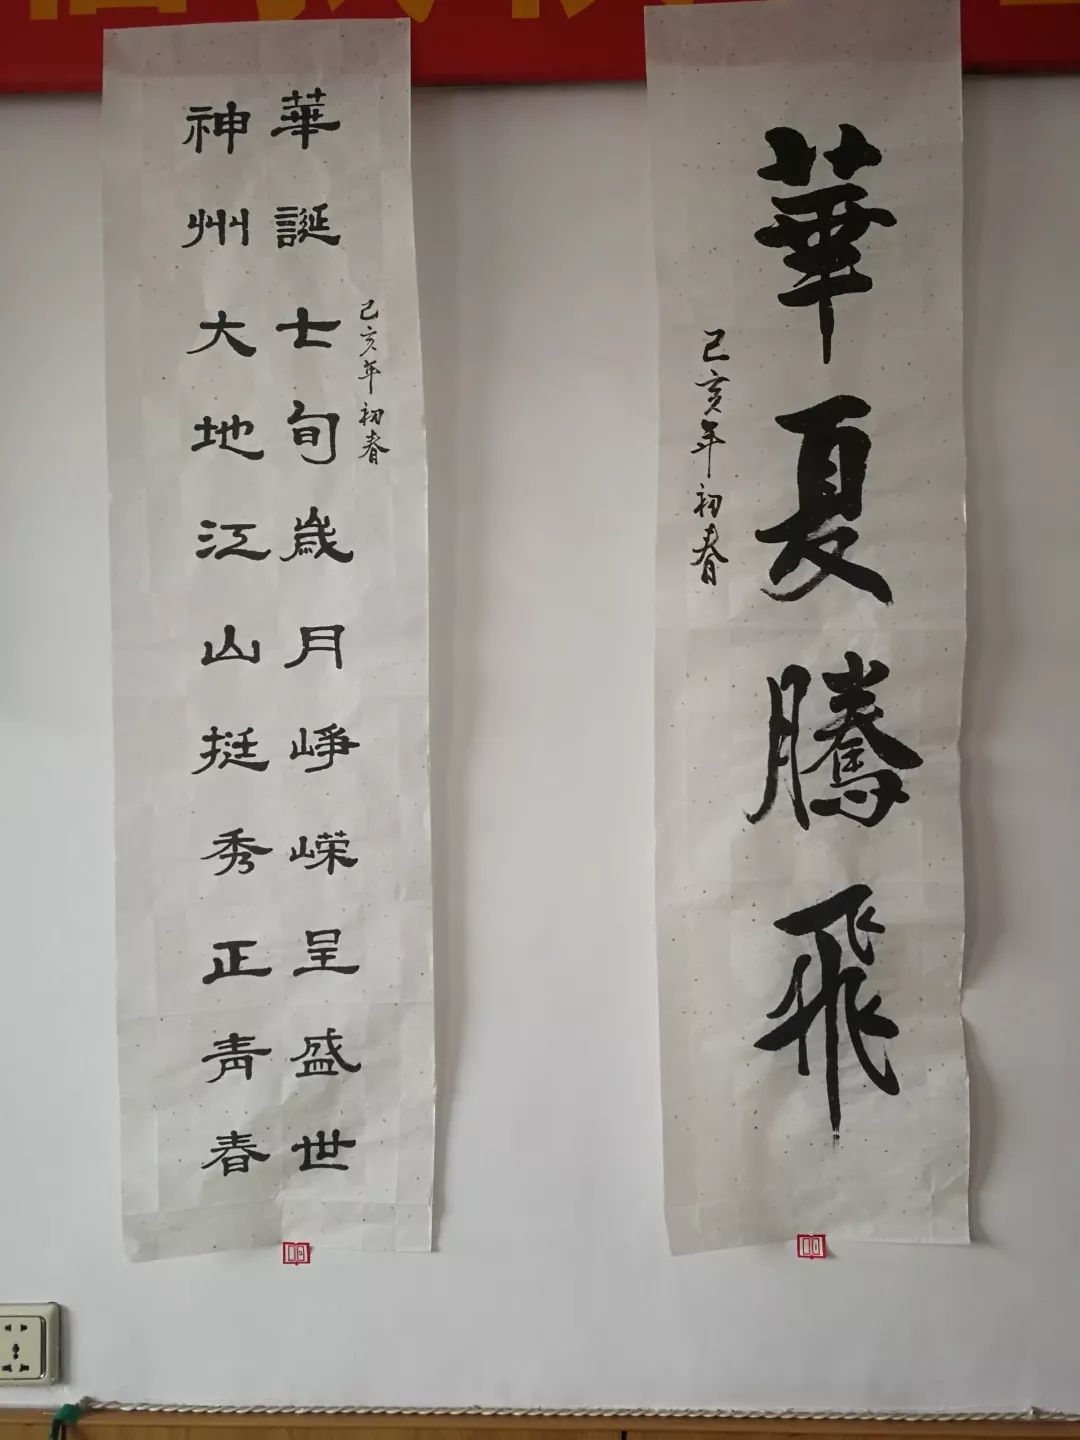 華夏騰飛
己亥年初春
己亥年初春
華誕士旬歲月崢嶸呈盛世
神州大地江山挺秀正青春